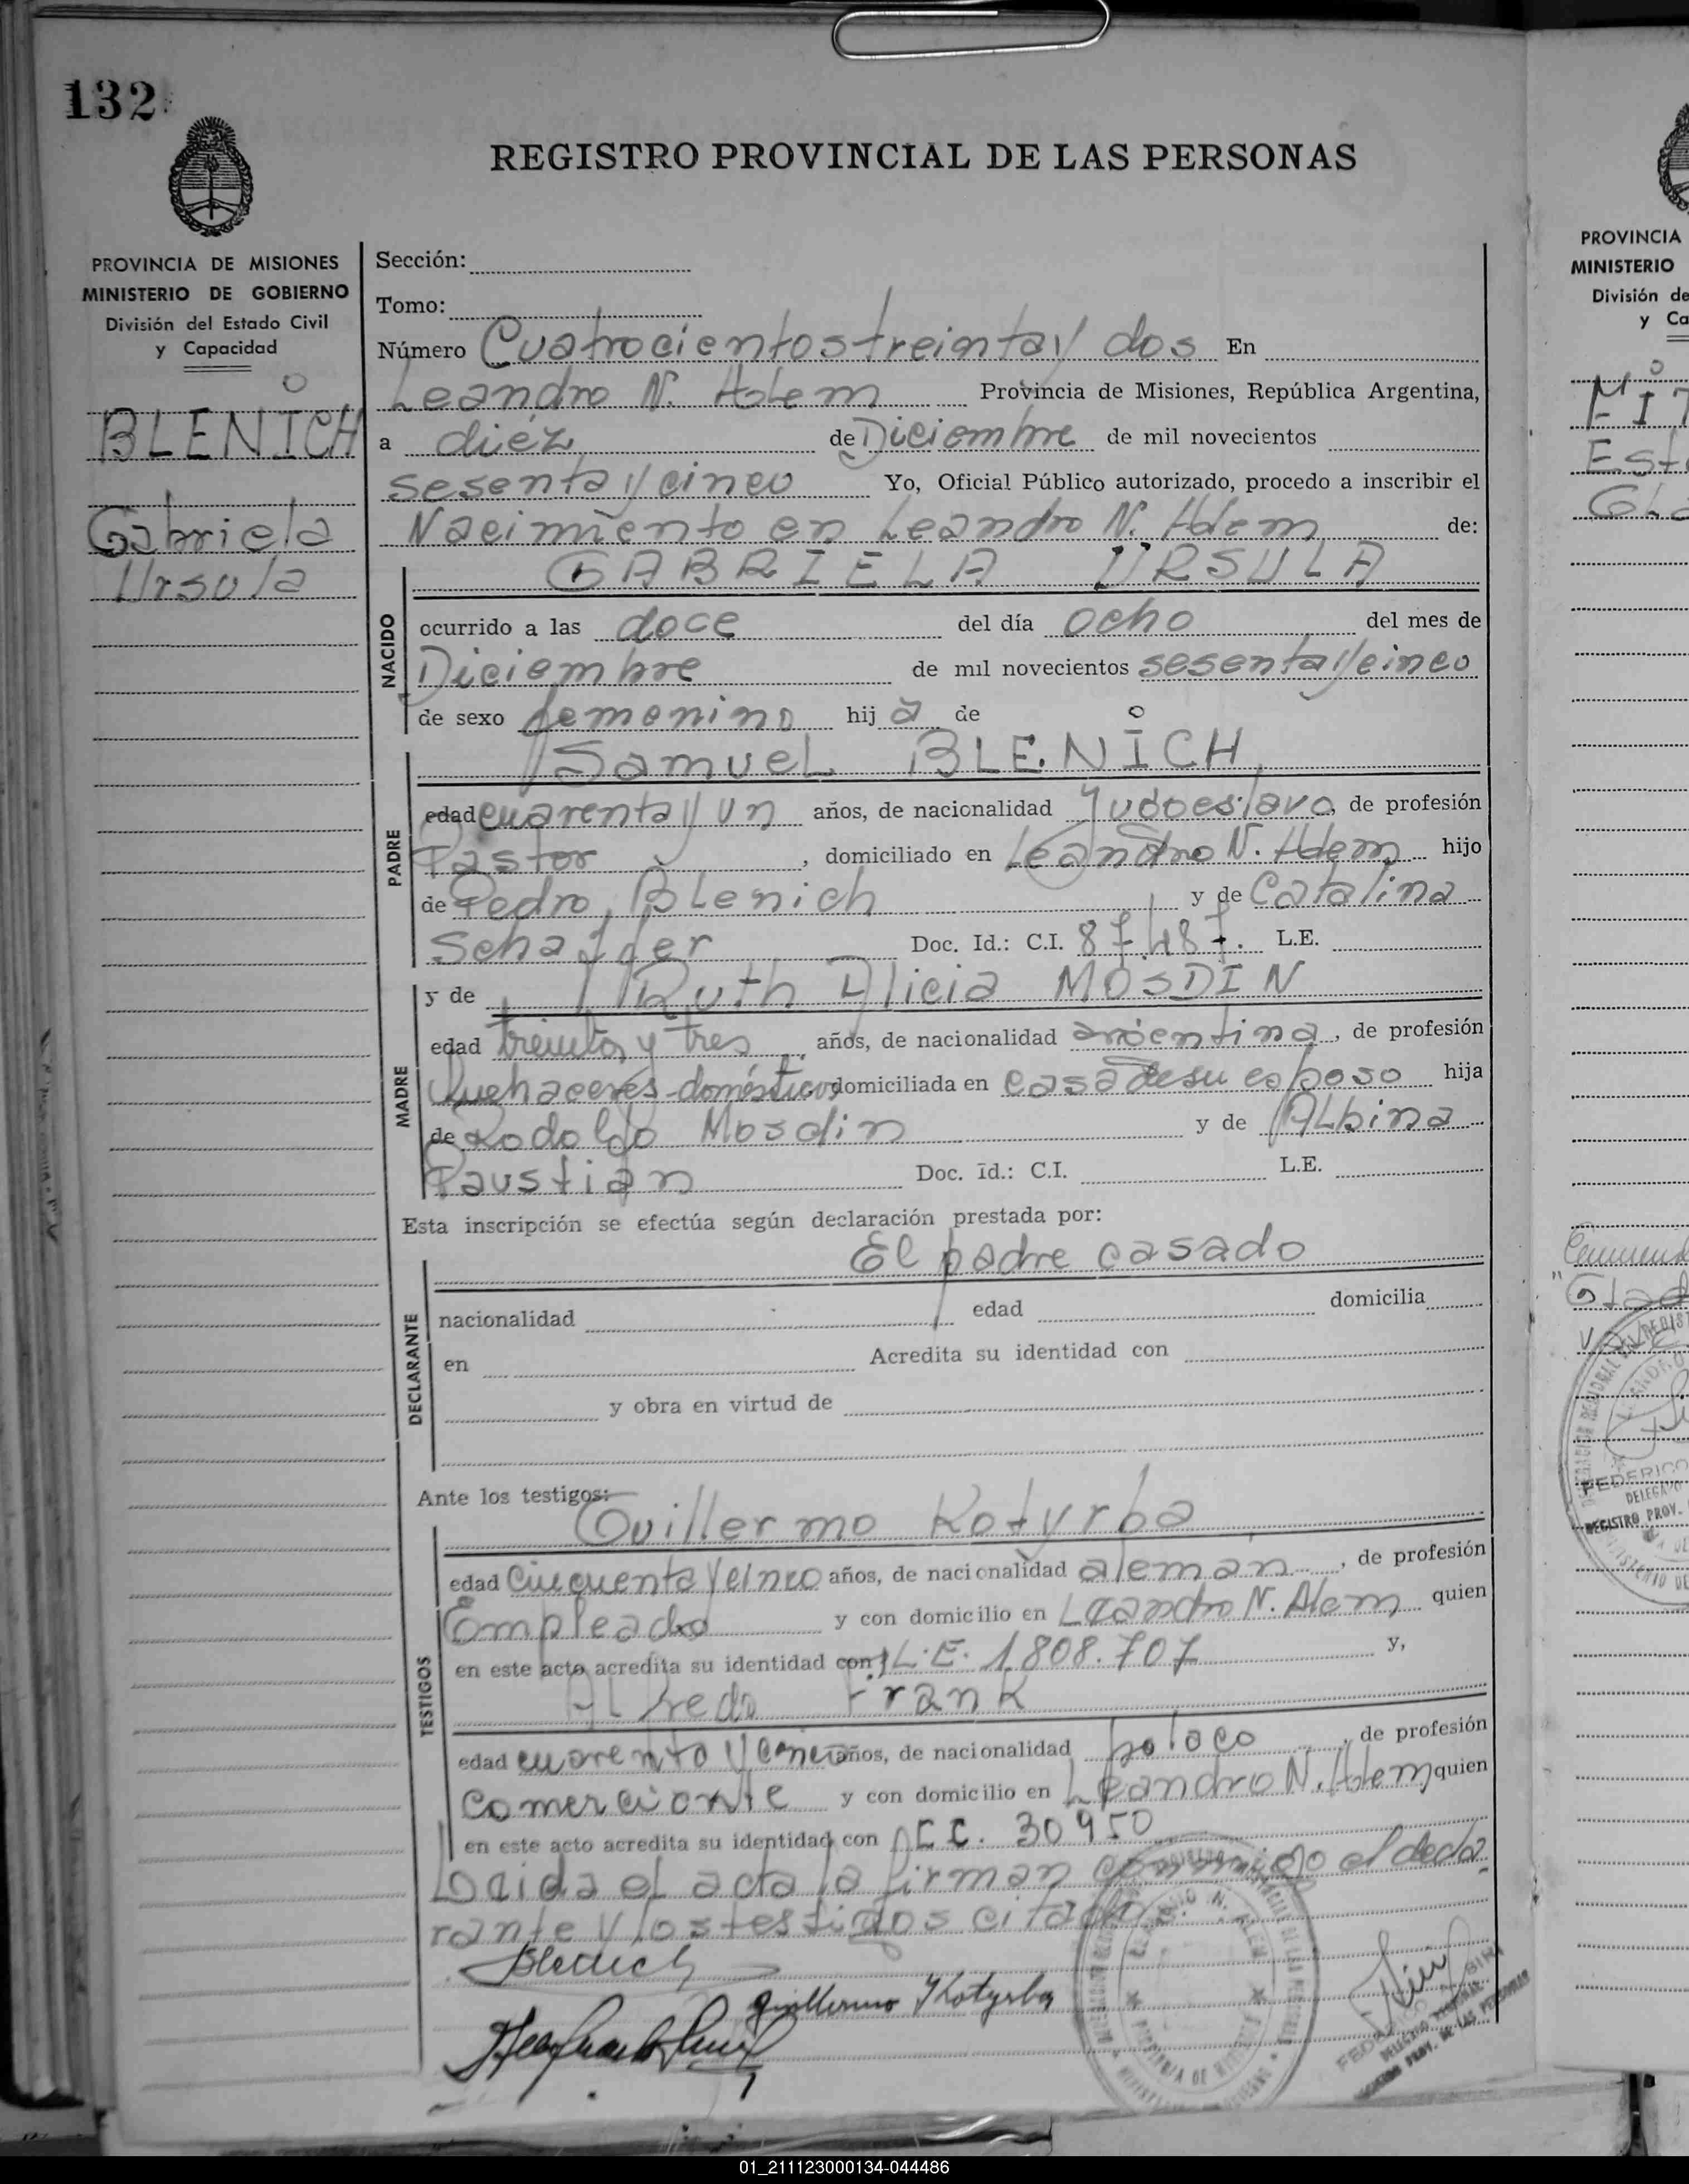 132
REGISTRO PROVINCIAL DE LAS PERSONAS
PROVINCIA DE MISIONES
MINISTERIO DE GOBIERNO
División del Estado Civil
y Capacidad
BLENICH
Gabriela
Ursula
Sección:
Tomo:
Número Cuatrocientos treinta y dos En
Leandro N. Alem Provincia de Misiones, República Argentina,
a diéz de Diciembre de mil novecientos
sesenta y cinco Yo, Oficial Público autorizado, procedo a inscribir el
Nacimiento en Leandro N. Alem de:
GABRIELA URSULA
NACIDO
ocurrido a las doce del día ocho del mes de
Diciembre de mil novecientos sesenta y cinco
de sexo femenino hij a de
Samuel BLENICH
PADRE
edad cuarenta y un años, de nacionalidad Yugoeslavo, de profesión
Pastor, domiciliado en Leandro N. Alem hijo
de Pedro Blenich y de Catalina
Schaffer Doc. Id.: C.I. 87.487. L.E.
y de Ruth Alicia MOSDIN
MADRE
edad treinta y tres, años, de nacionalidad argentina, de profesión
Quehaceres domésticos domiciliada en casa de su esposo hija
de Rodolfo Mosdin y de Albina
Paustian Doc. id.: C.I. L.E.
Esta inscripción se efectúa según declaración prestada por:
El padre casado
DECLARANTE
nacionalidad edad domicilia
en Acredita su identidad con
y obra en virtud de
Ante los testigos:
Guillermo Kotyrba
TESTIGOS
edad cincuenta y cinco años, de nacionalidad alemán, de profesión
Empleado y con domicilio en Leandro N. Alem quien
en este acto acredita su identidad con L.E. 1.808.707 y,
Alfredo Frank
edad cuarenta y cinco años, de nacionalidad polaco, de profesión
comerciante y con domicilio en Leandro N. Alem quien
en este acto acredita su identidad con 30950
Leida el acta la firman conmigo el decla-
rante y los testigos citados.
Blenich
Guillermo Kotyrba
PROVINCIA
MINISTERIO
División de
y Ca
01_211123000134-044486